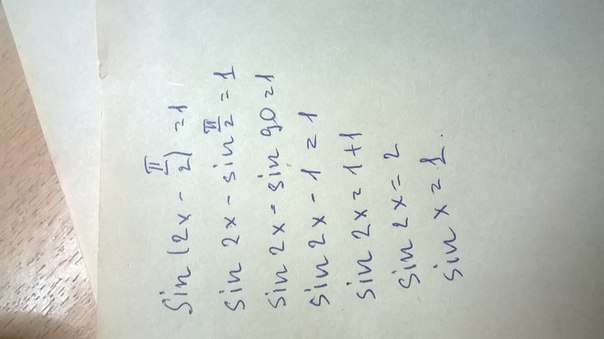 Sin (2x - π/2) = 1
Sin 2x - sin π/2 = 1
Sin 2x - Sin 90 = 1
Sin 2x - 1 = 1
Sin 2x = 1+1
Sin 2x = 2
Sin x = 1.